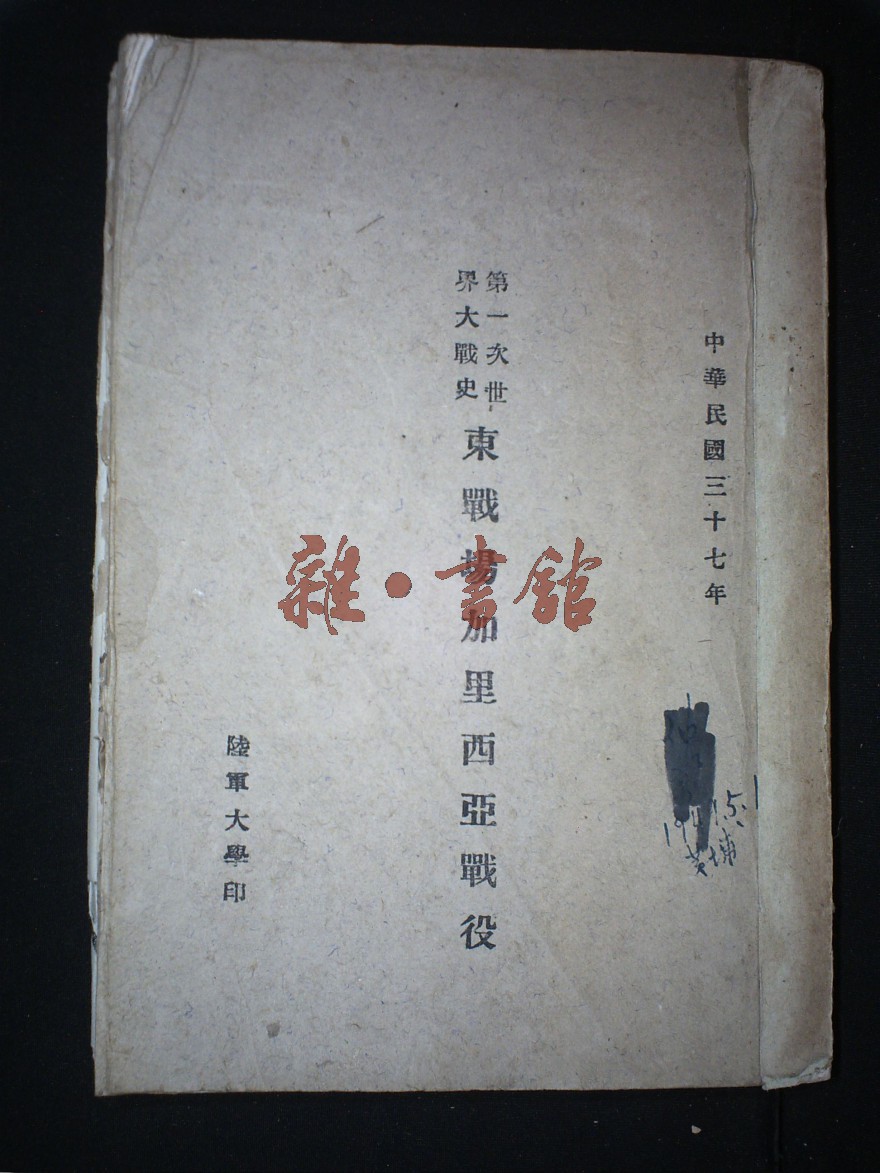 中華民國三十七年
第一次世
界大戰史
東戰場加里西亞戰役
陸軍大學印
雜·書館
黃埔